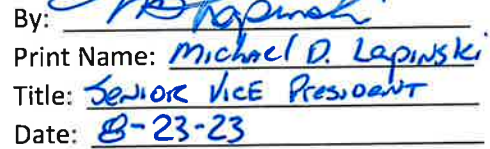 By:
Print Name: Michael D. Lapinski
Title: Senior Vice President
Date: 8-23-23